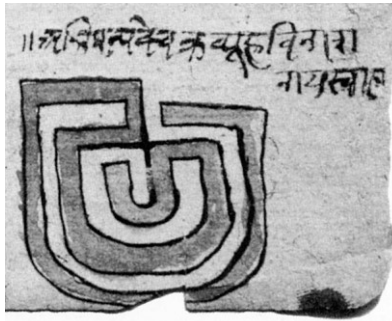 ॥अभिमन्यवेचक्रव्यूहविनाशा
नायस्वाहा